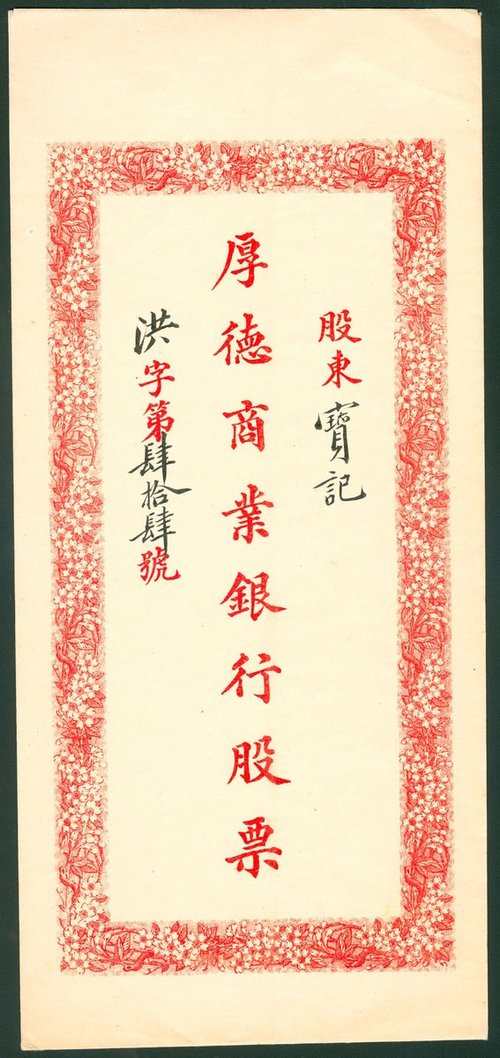 股東寶記
厚德商業銀行股票
洪字第肆拾肆號